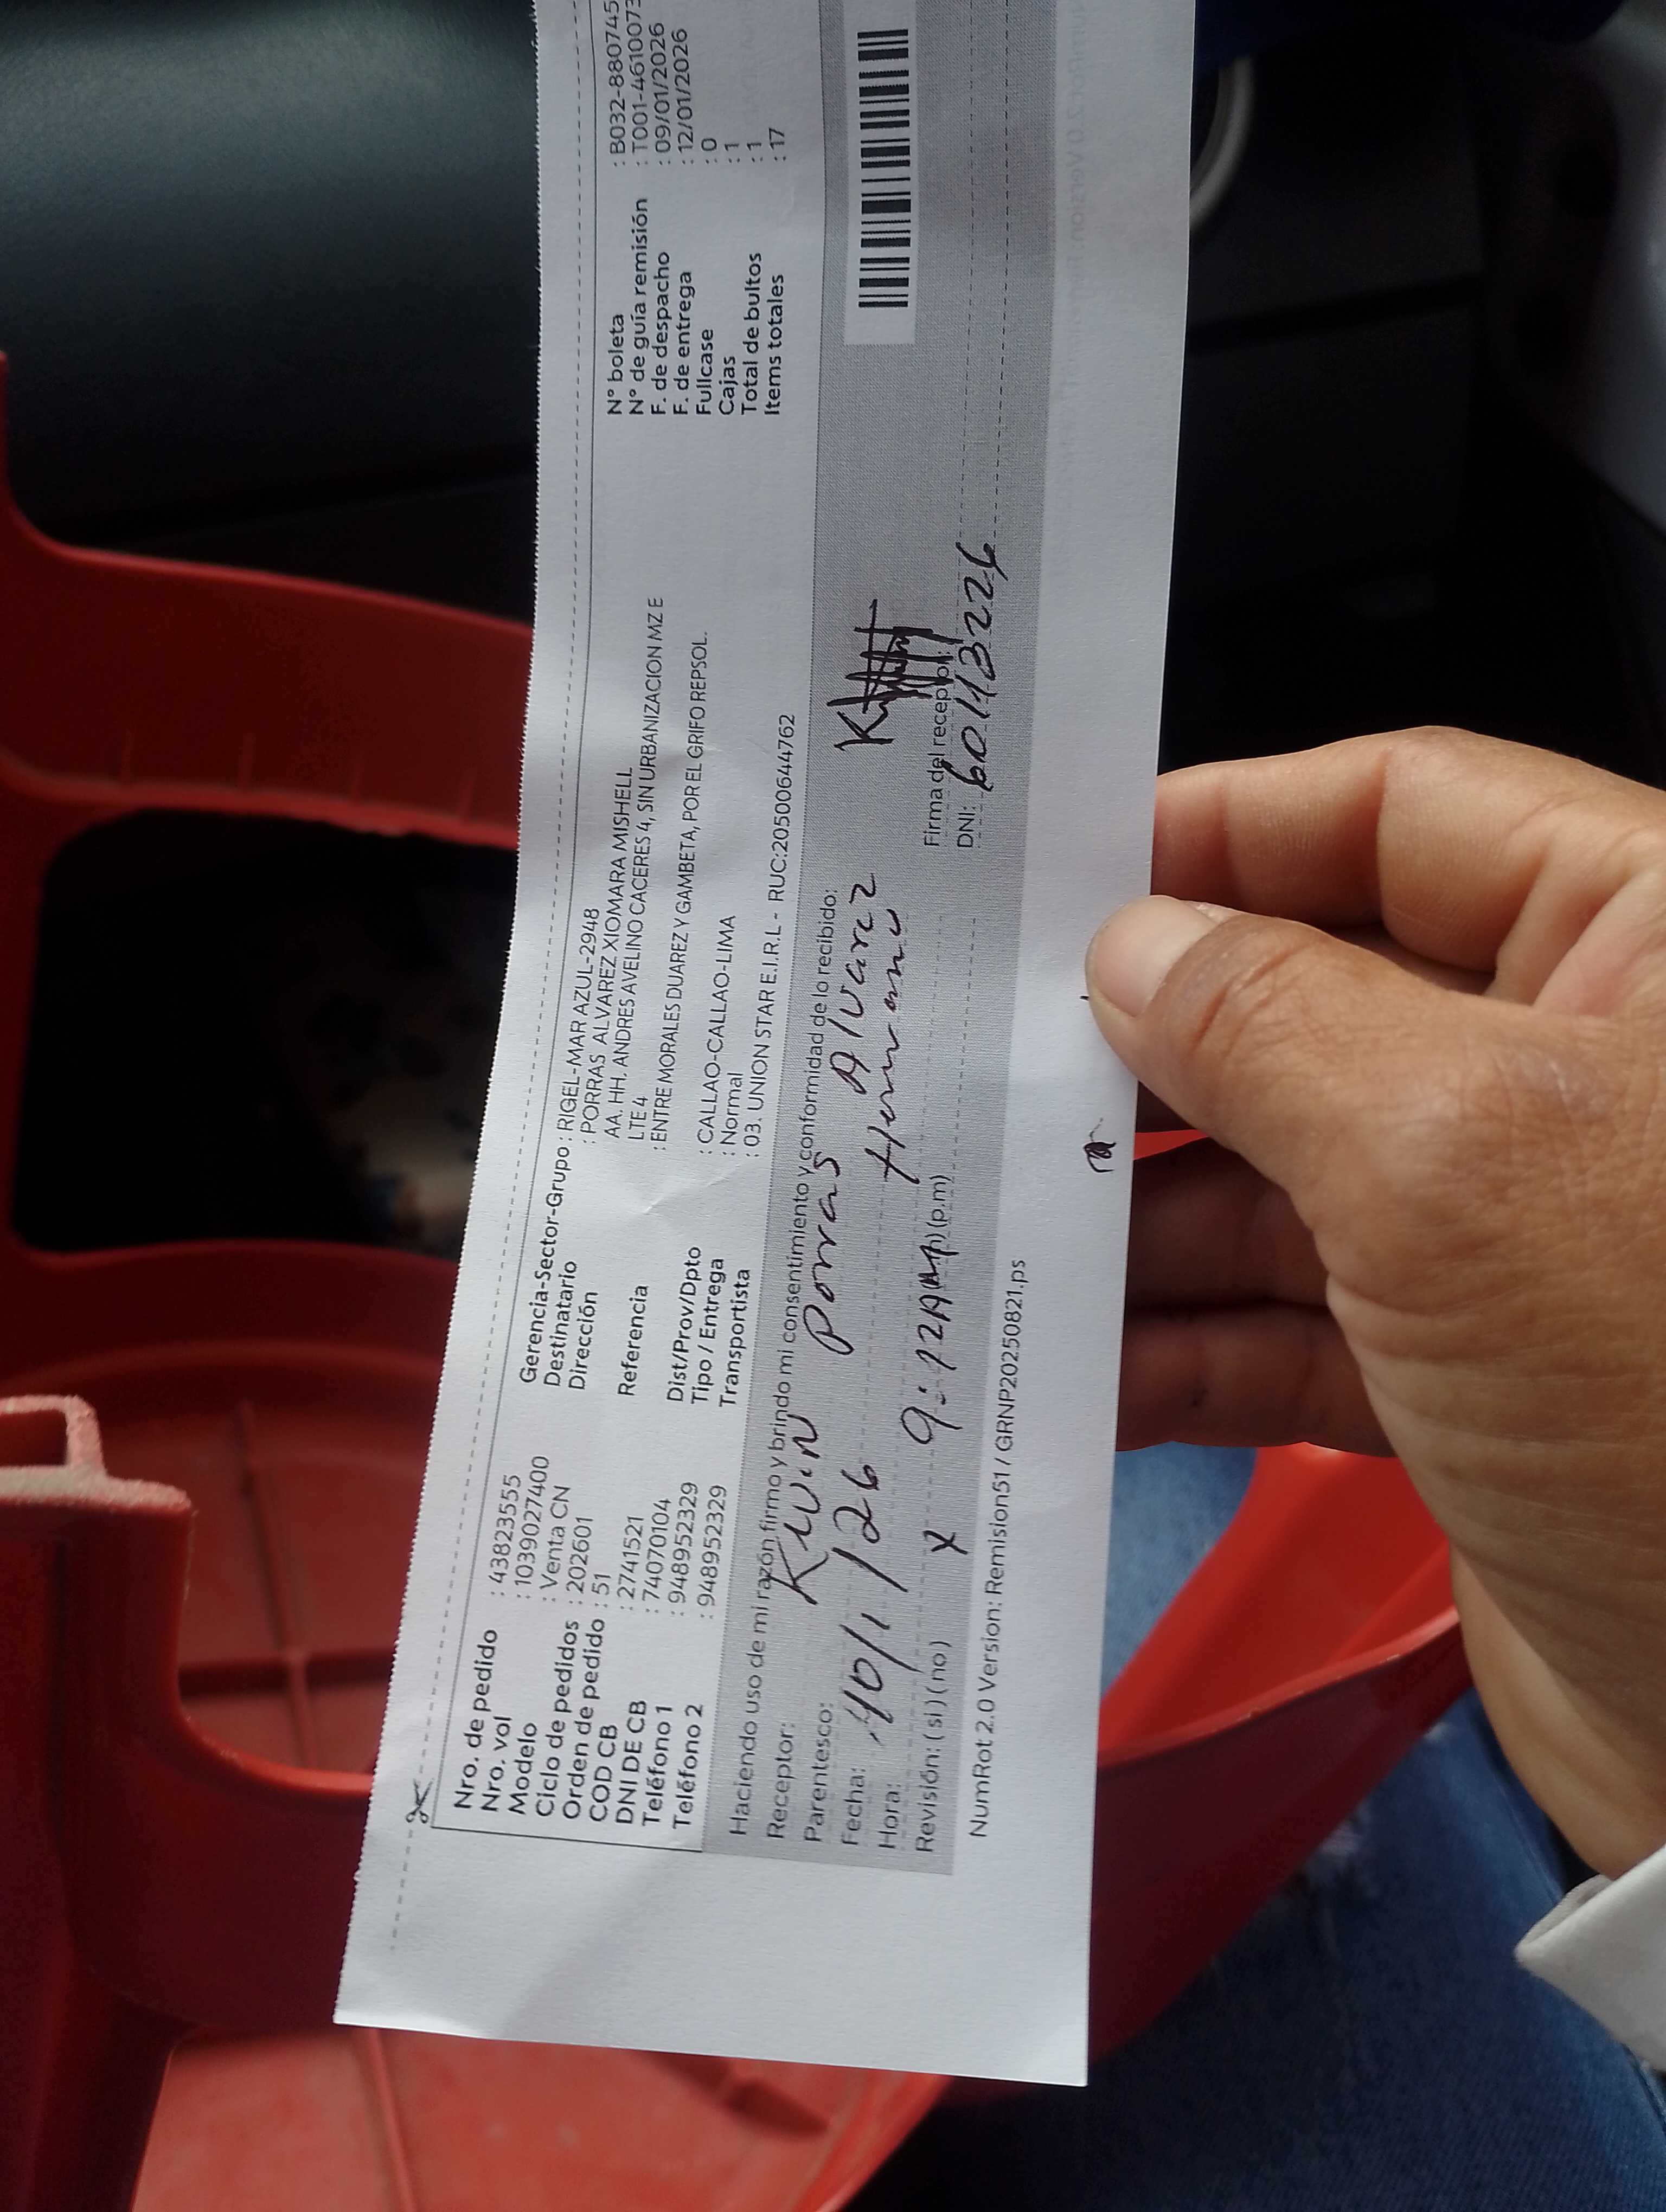 Nro. de pedido : 43823555
Nro. vol : 1039027400
Modelo : Venta CN
Ciclo de pedidos : 202601
Orden de pedido : 51
COD CB : 2741521
DNI DE CB : 74070104
Teléfono 1 : 948952329
Teléfono 2 : 948952329
Gerencia-Sector-Grupo : RIGEL-MAR AZUL-2948
Destinatario : PORRAS ALVAREZ XIOMARA MISHELL
Dirección AA. HH. ANDRES AVELINO CACERES 4, SIN URBANIZACION MZ E
LTE 4
Referencia : ENTRE MORALES DUAREZ Y GAMBETA, POR EL GRIFO REPSOL.
Dist/Prov/Dpto : CALLAO-CALLAO-LIMA
Tipo / Entrega : Normal
Transportista : 03. UNION STAR E.I.R.L - RUC:20500644762
N° boleta : B032-880745
N° de guía remisión : T001-4610073
F. de despacho : 09/01/2026
F. de entrega : 12/01/2026
Fullcase : 0
Cajas : 1
Total de bultos : 1
Items totales : 17
Haciendo uso de mi razón firmo y brindo mi consentimiento y conformidad de lo recibido:
Receptor: Kevin Porras Alvarez
Parentesco: Hermano
Fecha: 10/1/26
Hora: 9:12 AM (p.m)
Revisión: (si) (no) X
Firma del receptor:
DNI: 60113226
NumRot 2.0 Version: Remision51 / GRNP20250821.ps